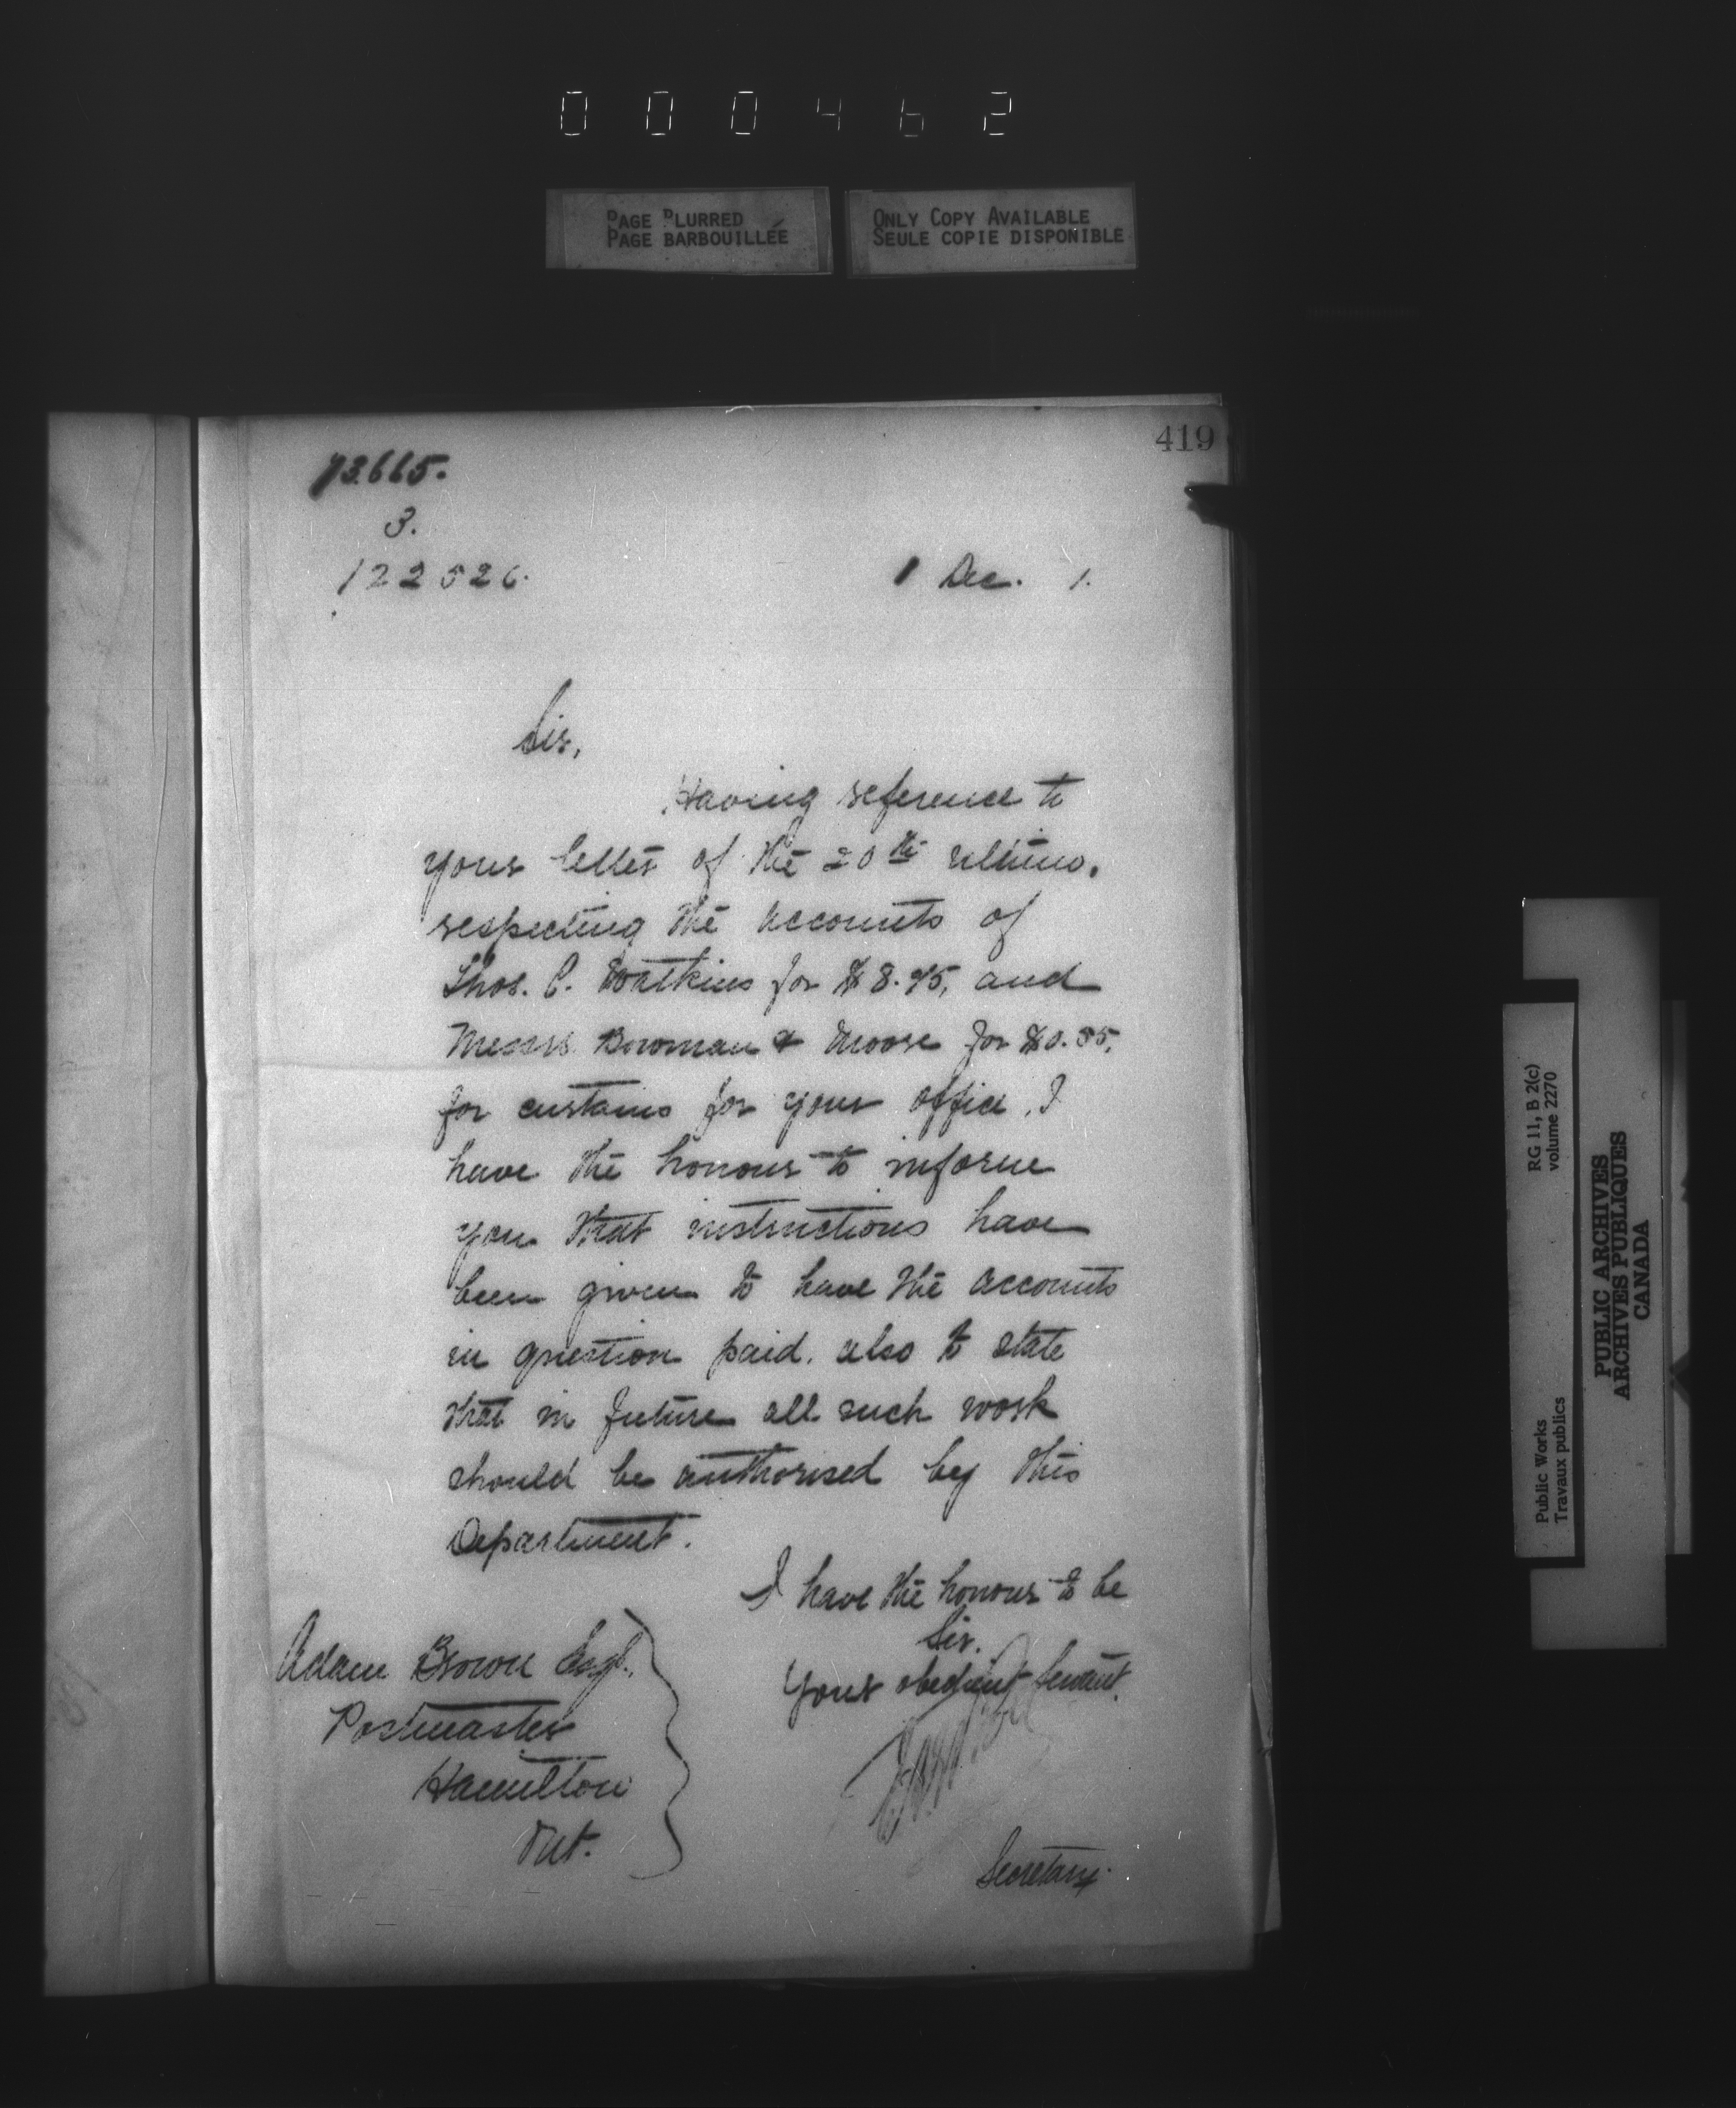 000462
PAGE BLURRED
PAGE BARBOUILLÉE
ONLY COPY AVAILABLE
SEULE COPIE DISPONIBLE
419
73665.
3.
122526.
1 Dec. 1.
Sir,
Having reference to
your letter of the 20th ultimo.
respecting the accounts of
Thos. C. Watkins for $8.95, and
Messrs. Bowman & Moore for $0.55,
for curtains for your office, I
have the honour to inform
you that instructions have
been given to have the accounts
in question paid. also to state
that in future all such work
should be authorised by this
Department.
I have the honour to be
Sir.
Your obedient Servant.
Secretary.
Adam Brown Esq.,
Postmaster
Hamilton
Ont.
RG 11, B 2(c)
volume 2270
Public Works
Travaux publics
PUBLIC ARCHIVES
ARCHIVES PUBLIQUES
CANADA